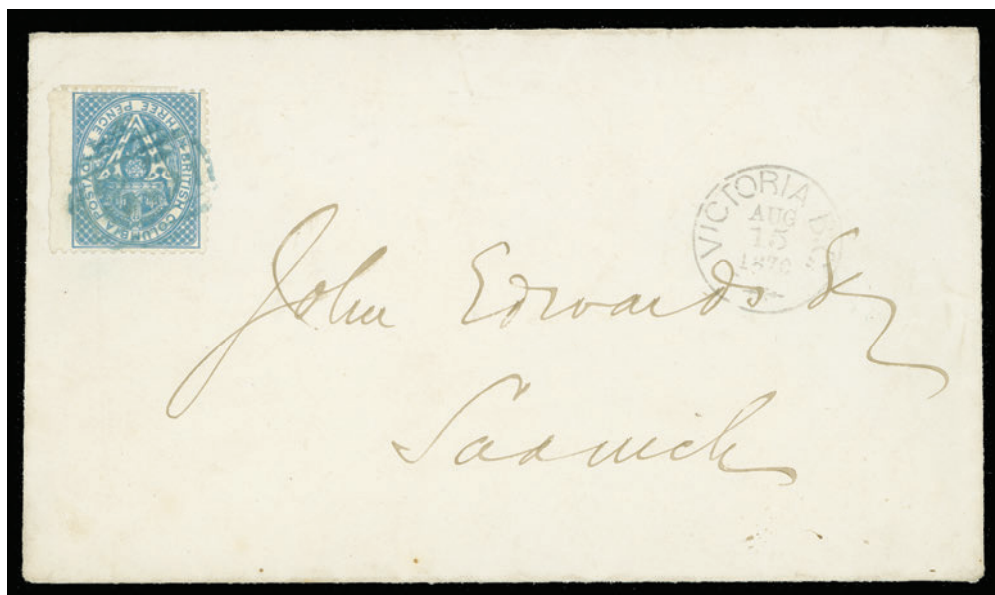 BRITISH COLUMBIA POSTAGE THREE PENCE
VICTORIA B.C.
AUG
15
1870
John Edwards Esq
Saanich